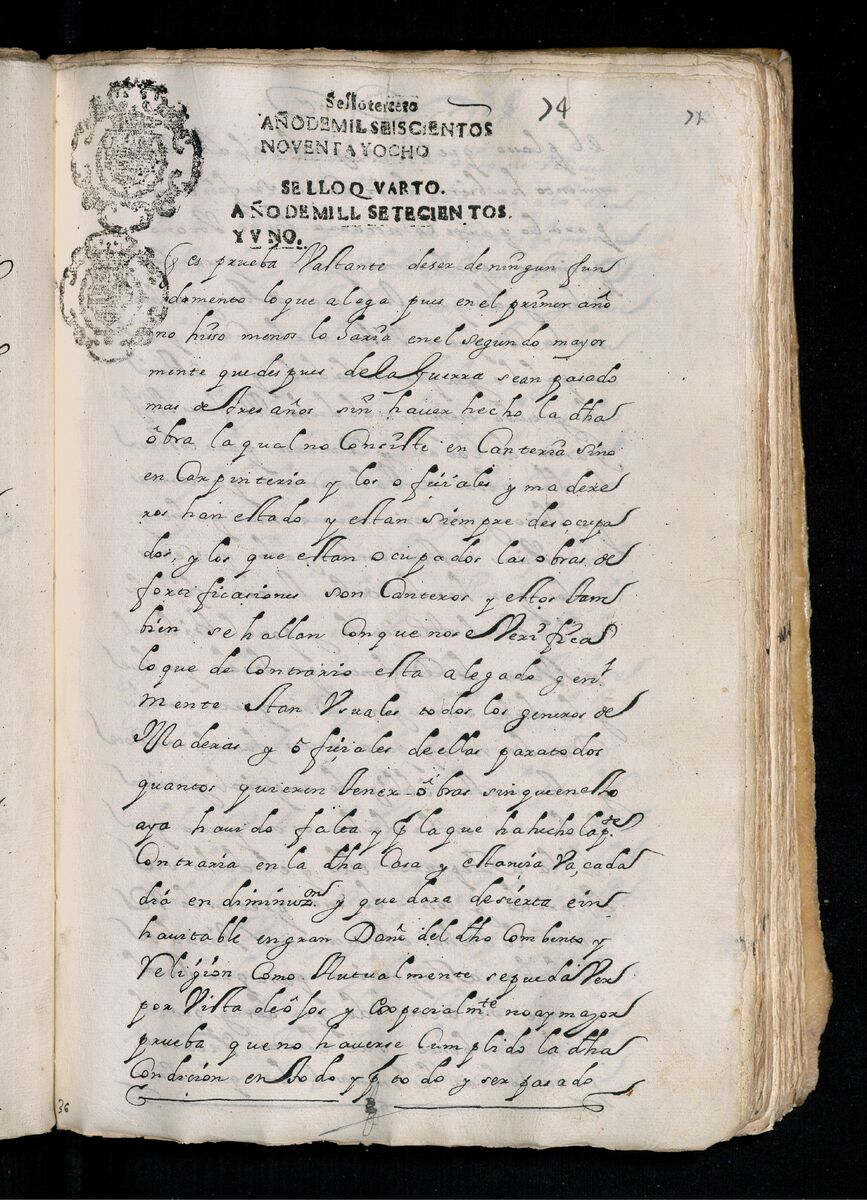 Sello tercero
AÑO DE MIL SEISCIENTOS
NOVENTA Y OCHO
74
SELLO QVARTO.
AÑO DE MILL SETECIENTOS.
Y VNO.
es prueba Vastante deser deningun fun
damento loque alega pues enel primer año
no hiso menos lo haria enel segundo mayor
mente quedespues dela Guerra sean pasado
mas de tres años sin haver hecho la dha
obra laqual no Consiste en Canteria sino
en Carpinteria y los ofiçiales y madere
ros han estado y estan siempre desocupa
dos, y los que estan ocupados las obras de
fortificasiones son Canteros y estos tam
bien se hallan Conque nose Verifica
loque de Contrario esta alegado y genl
mente stan Vsuales todos los generos de
Maderas y ofiçiales deellas paratodos
quantos quieren tener obras sinqueenesto
aya havido falta y p la que hahecho lapte
Contraria en la dha Casa y estançia Va, cada
dia en diminuzon y quedara desierta ein
havitable engran Daño del dho Combento y
Religion Como Autualmente sepueda Ver
por Vista deojos y Especialmte noaymayor
prueba queno haverse Cumplido la dha
Condiçion en todo y p todo y ser pasado
36